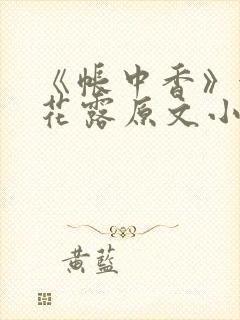 《帐中香》
花露原文小
黄蓝